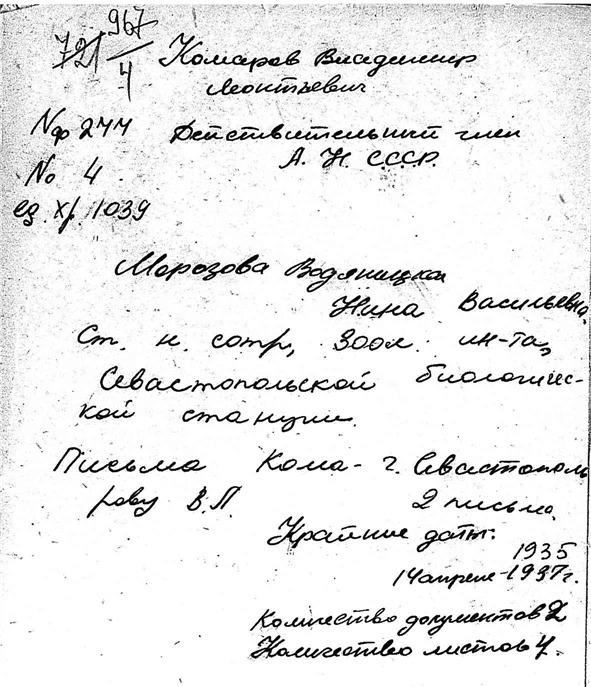 721 967/4
Комаров Владимир
Леонтьевич
№ф 277 Действительный член
№ 4 А. Н. СССР.
ед. хр. 1039
Морозова Водяницкая
Нина Васильевна.
Ст. н. сотр, Зоол. ин-та,
Севастопольской биологичес-
кой станции.
Письма Кома- г. Севастополь
рову В.Л. 2 письма.
Крайние даты:
1935
14 апреля-1937г.
Количество документов 2
Количество листов 4.